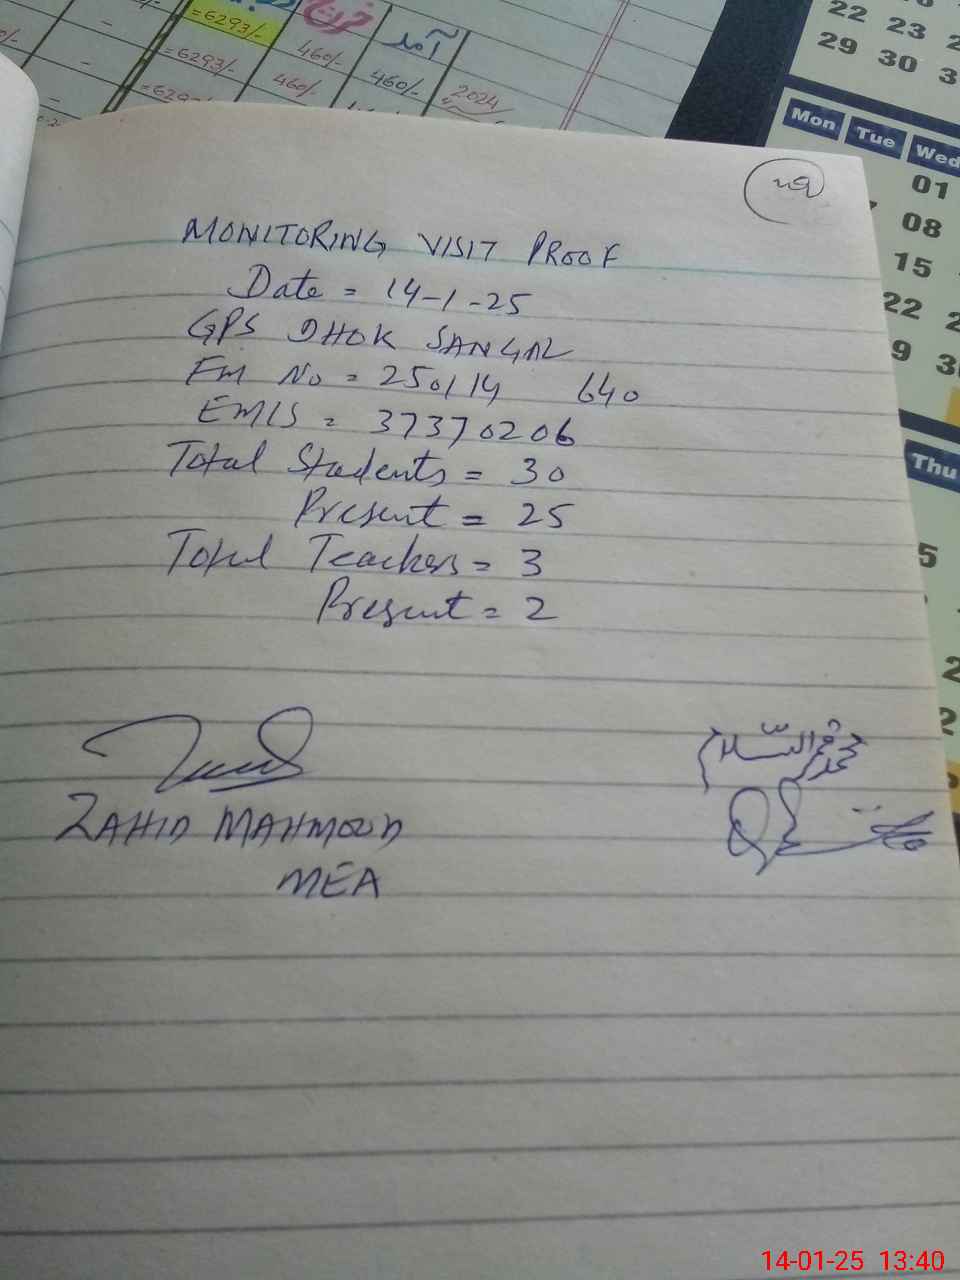 =6293/-
خرچ
آمد
=6293/-
460/-
460/-
460/-
2024/
22 23
29 30
Mon Tue Wed
01
08
15
22
9
Thu
MONITORING VISIT PROOF
Date = 14-1-25
GPS DHOK SANGAL
Em No = 250114 640
EMIS = 37370206
Total Students = 30
Present = 25
Total Teachers = 3
Present = 2
ZAHID MAHMOOD
MEA
محمد قمر السلام
14-01-25 13:40